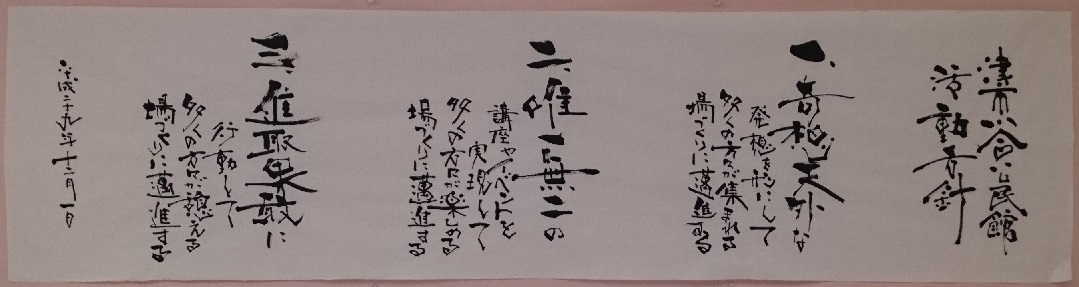 津市川合公民館
活動方針
一、奇想天外な
発想を形にして
多くの方々が集まれる
場づくりに邁進する
二、唯一無二の
講座やイベントを
実現して
多くの方々が楽しめる
場づくりに邁進する
三、進取果敢に
行動して
多くの方々が憩える
場づくりに邁進する
平成二十九年十二月一日